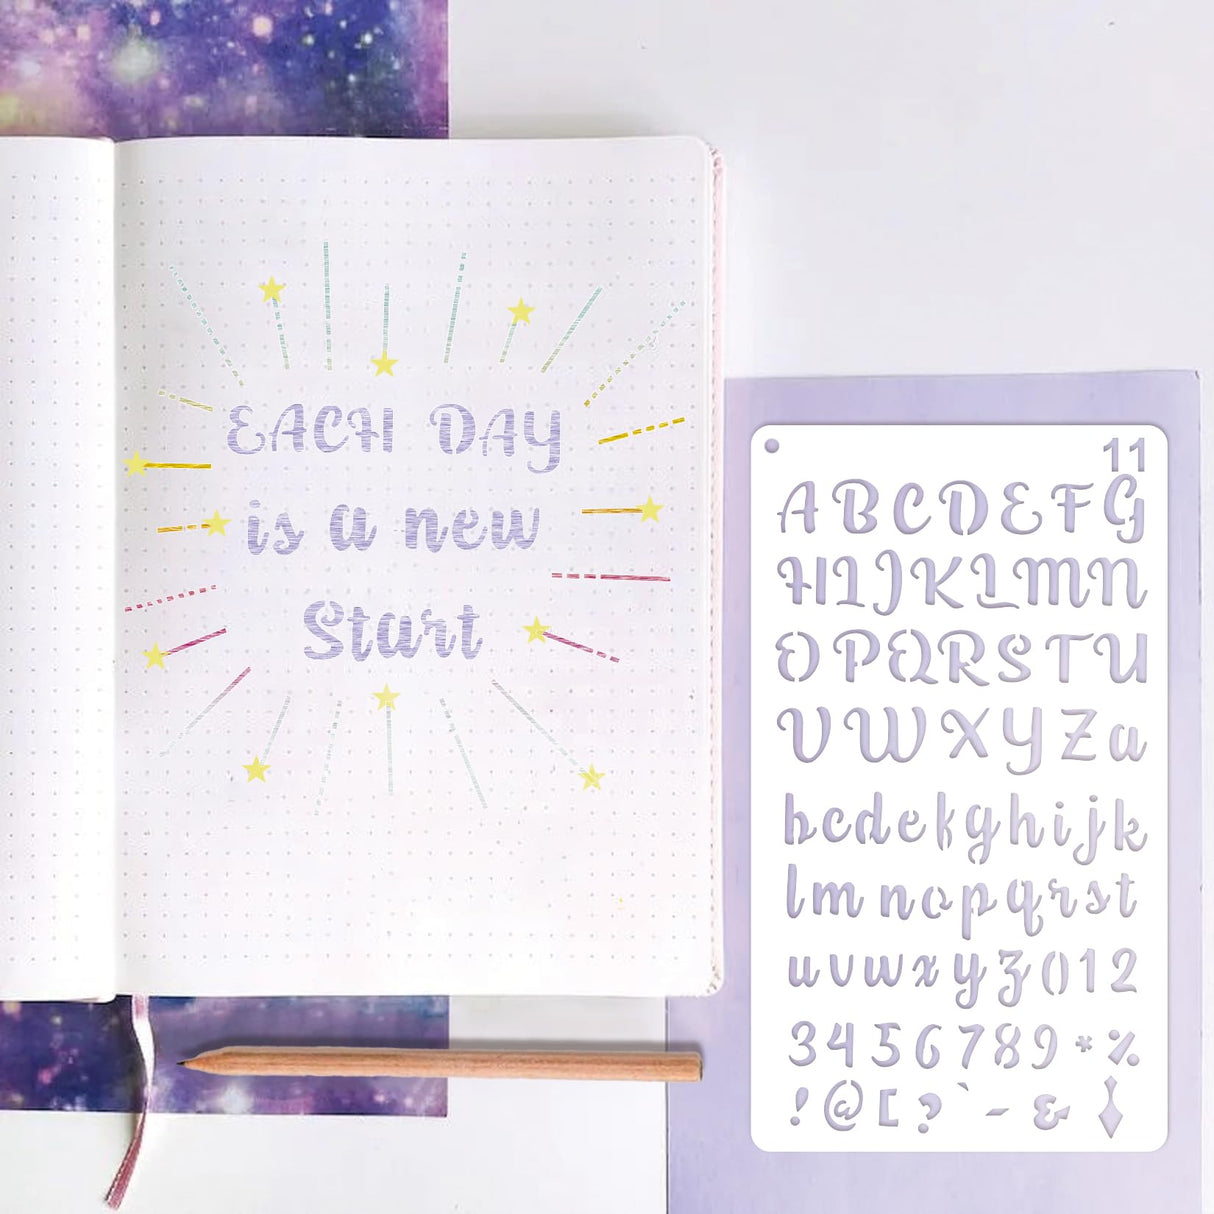 EACH DAY
is a new
Start
11
ABCDEFG
HIJKLMN
OPQRSTU
VWXYZa
bcdefghijk
lmnopqrst
uvwxyz012
3456789*%
!@[?`-&